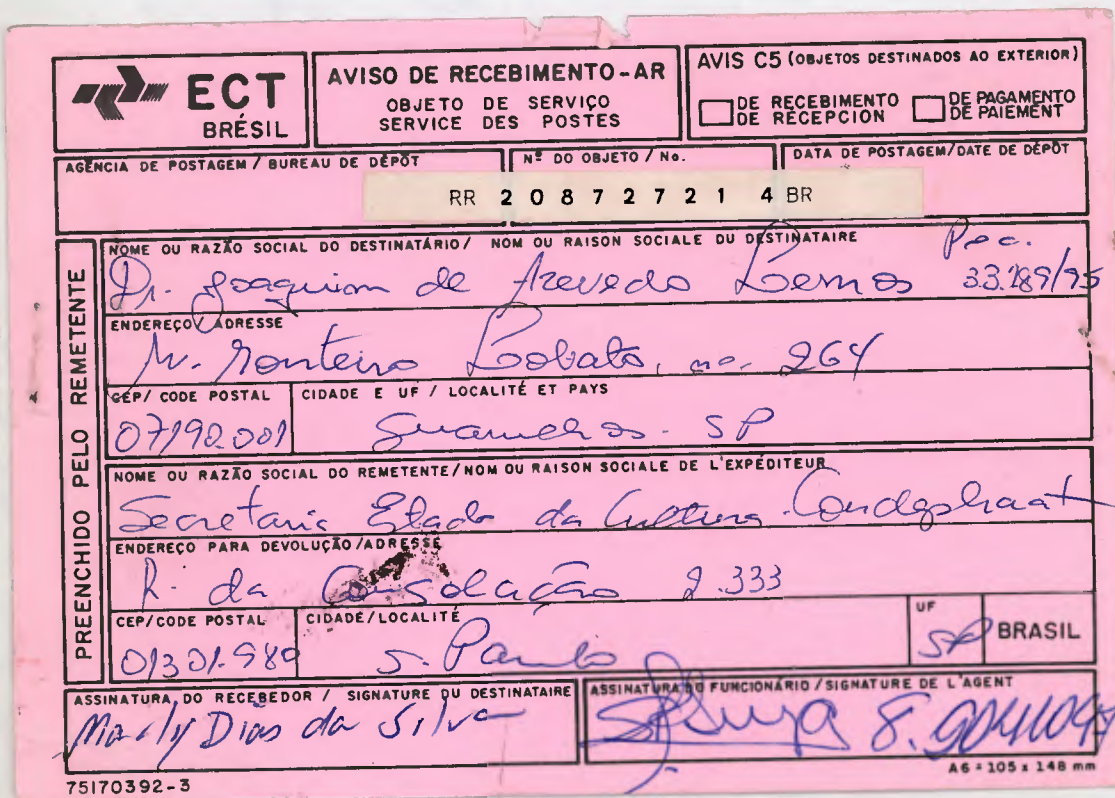 ECT
BRÉSIL
AVISO DE RECEBIMENTO-AR
OBJETO DE SERVIÇO
SERVICE DES POSTES
AVIS C5 (OBJETOS DESTINADOS AO EXTERIOR)
DE RECEBIMENTO
DE RÉCEPCION
DE PAGAMENTO
DE PAIEMENT
AGÊNCIA DE POSTAGEM / BUREAU DE DÉPÔT
Nº DO OBJETO / No.
DATA DE POSTAGEM/DATE DE DÉPÔT
RR 20872721 4 BR
PREENCHIDO PELO REMETENTE
NOME OU RAZÃO SOCIAL DO DESTINATÁRIO / NOM OU RAISON SOCIALE DU DESTINATAIRE
Dr. Joaquim de Azevedo Lemos
33.189/95
ENDEREÇO / ADRESSE
Monteiro Lobato, no. 264
CEP/ CODE POSTAL
CIDADE E UF / LOCALITÉ ET PAYS
07190.001
Guarulhos - SP
NOME OU RAZÃO SOCIAL DO REMETENTE/NOM OU RAISON SOCIALE DE L'EXPÉDITEUR
Secretaria Estado da Cultura - Condephaat
ENDEREÇO PARA DEVOLUÇÃO/ADRESSE
R. da Consolação 2.333
CEP/CODE POSTAL
CIDADE/LOCALITÉ
UF
01301.980
S. Paulo
SP
BRASIL
ASSINATURA DO RECEBEDOR / SIGNATURE DU DESTINATAIRE
Marly Dias da Silva
ASSINATURA DO FUNCIONÁRIO / SIGNATURE DE L'AGENT
75170392-3
A6 = 105 x 148 mm